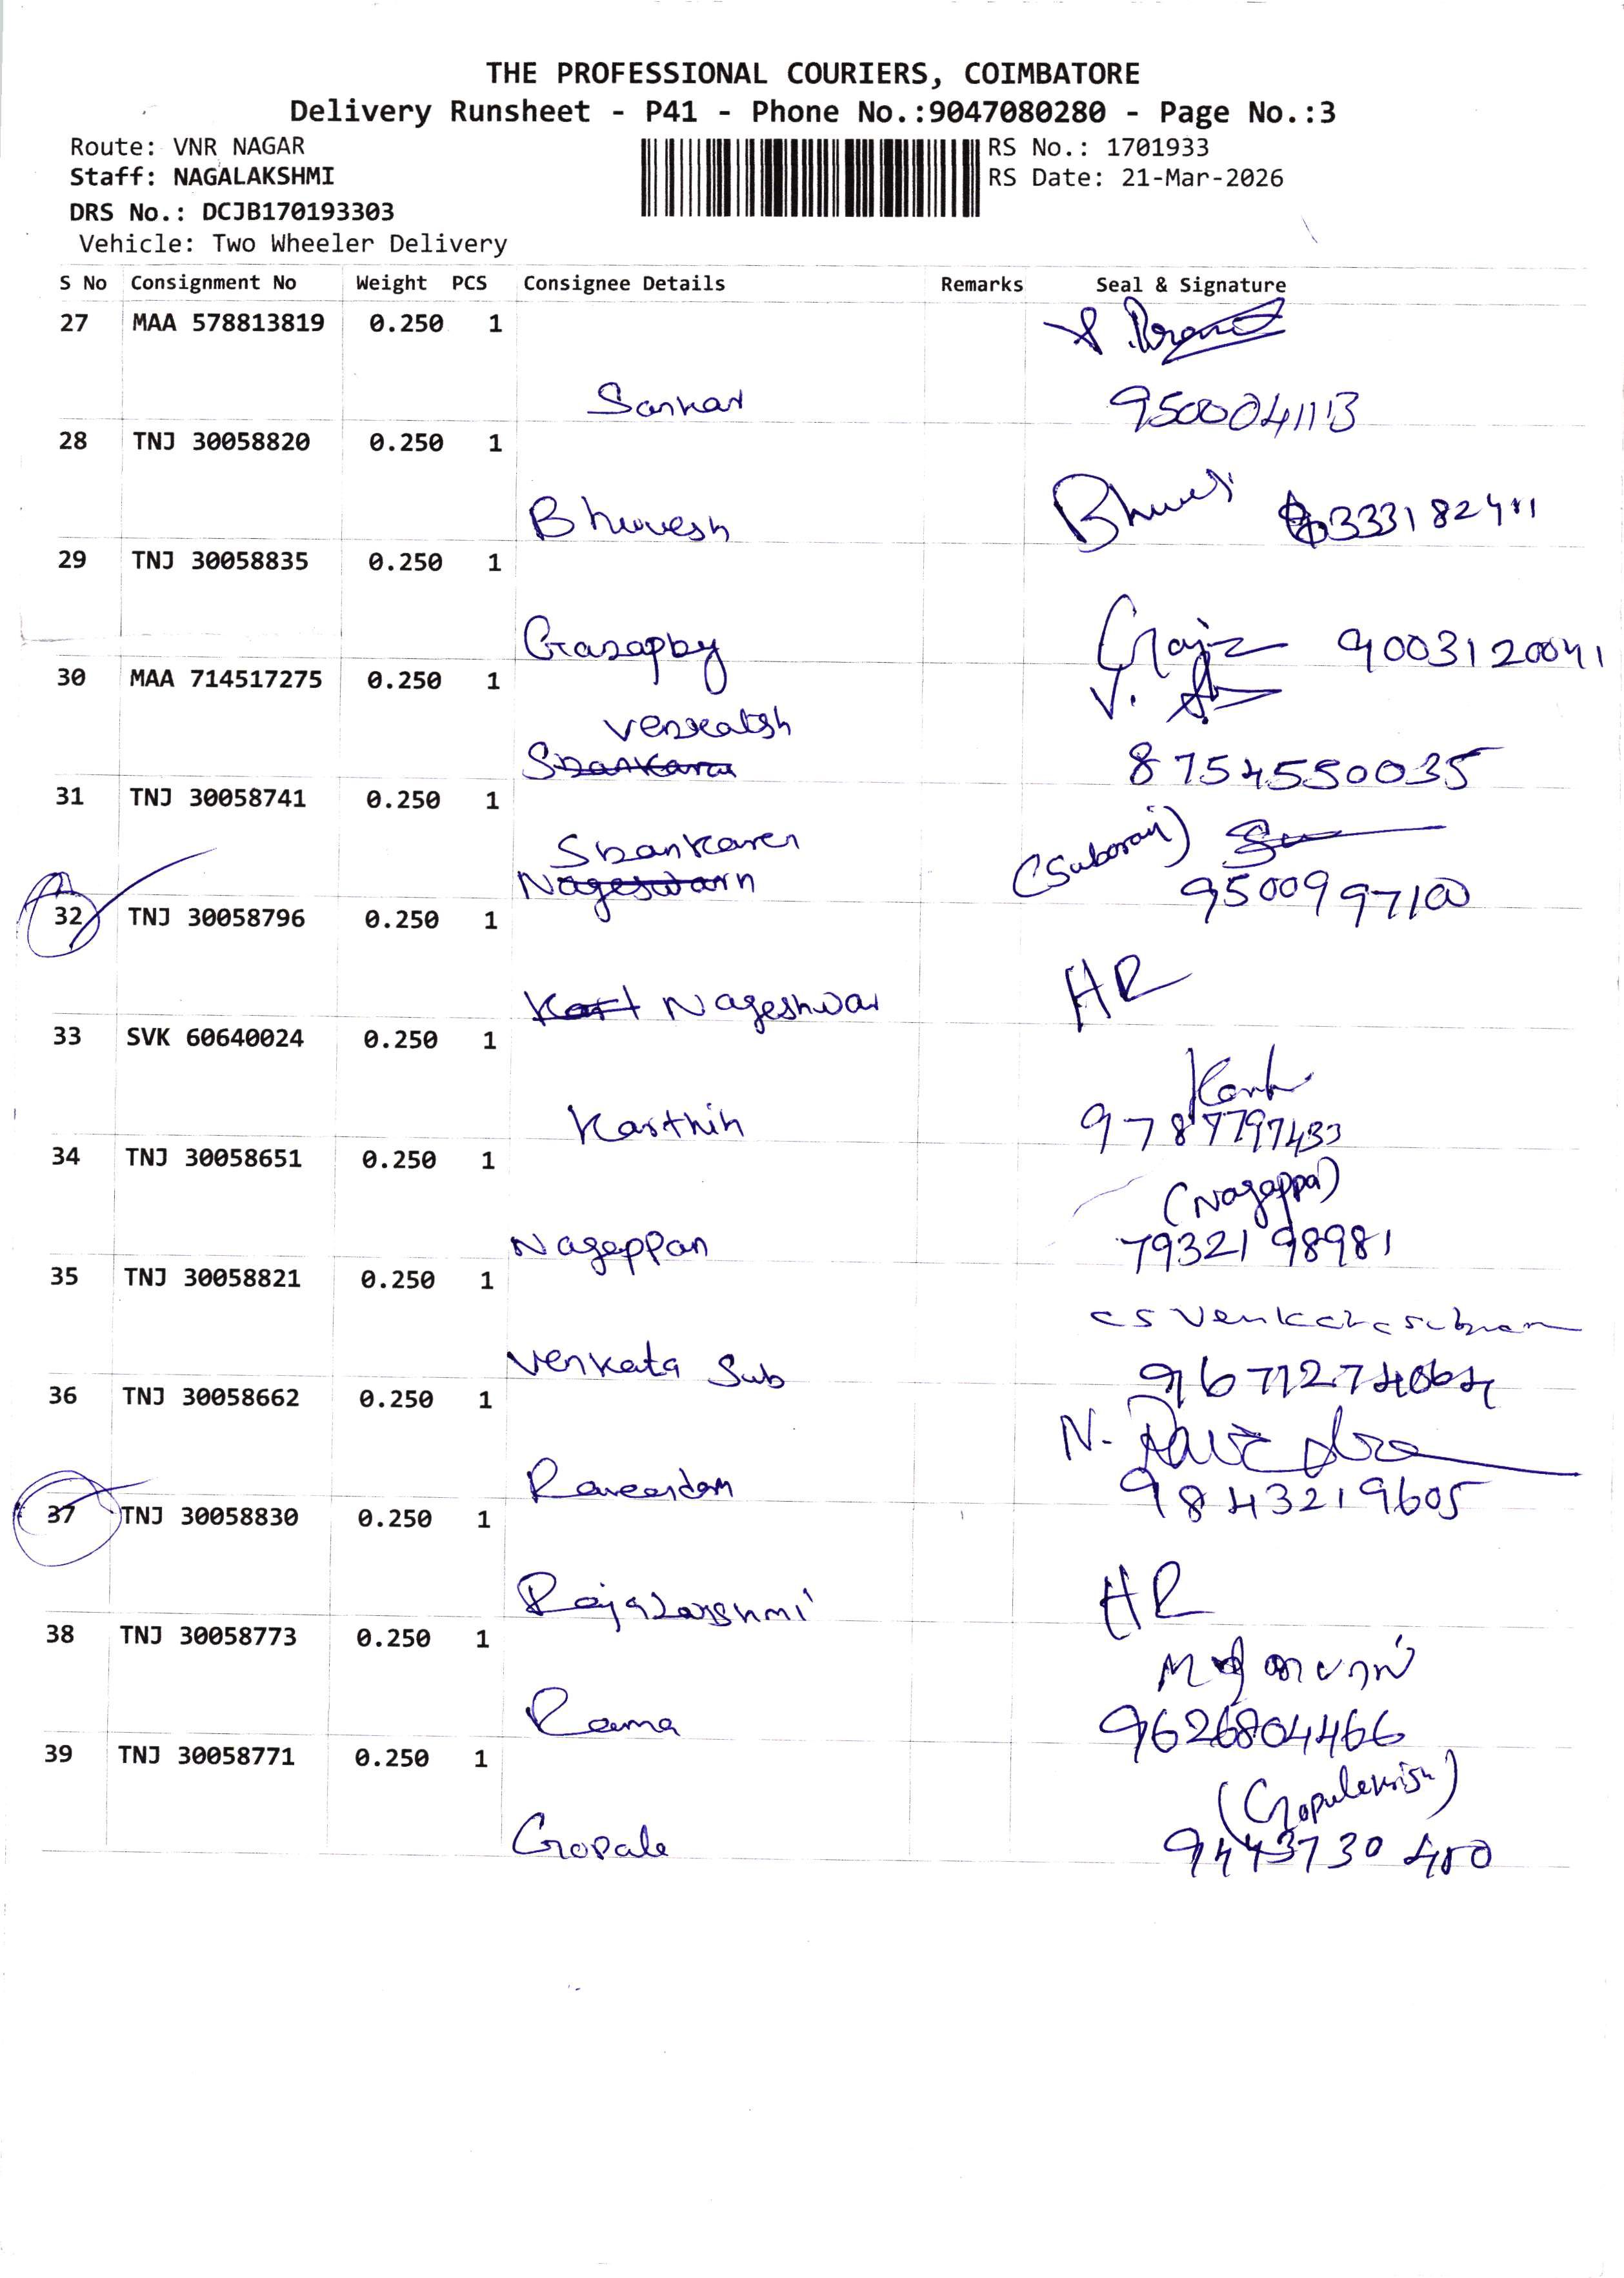 THE PROFESSIONAL COURIERS, COIMBATORE
Delivery Runsheet - P41 - Phone No.:9047080280 - Page No.:3
Route: VNR NAGAR
RS No.: 1701933
Staff: NAGALAKSHMI
RS Date: 21-Mar-2026
DRS No.: DCJB170193303
Vehicle: Two Wheeler Delivery
S No Consignment No Weight PCS Consignee Details Remarks Seal & Signature
27 MAA 578813819 0.250 1
Sankar 9500041113
28 TNJ 30058820 0.250 1
Bhuvesh Bhuves 333182411
29 TNJ 30058835 0.250 1
9003120041
30 MAA 714517275 0.250 1 V.
Venkatsh
Shankara 8754550035
31 TNJ 30058741 0.250 1
Shankaren
Nageswarn 9500997100
32 TNJ 30058796 0.250 1
Kart Nageshwar HR
33 SVK 60640024 0.250 1
Karthik 9787797433
34 TNJ 30058651 0.250 1 (Nagappa)
Nagappan 7932198981
35 TNJ 30058821 0.250 1
CS Venkatasubram
Venkata Sub
36 TNJ 30058662 0.250 1 N.
9843219605
37 TNJ 30058830 0.250 1
Rajalakshmi HR
38 TNJ 30058773 0.250 1
Rama 9626804466
39 TNJ 30058771 0.250 1 (Gopalakrish)
Gopala 9443730400